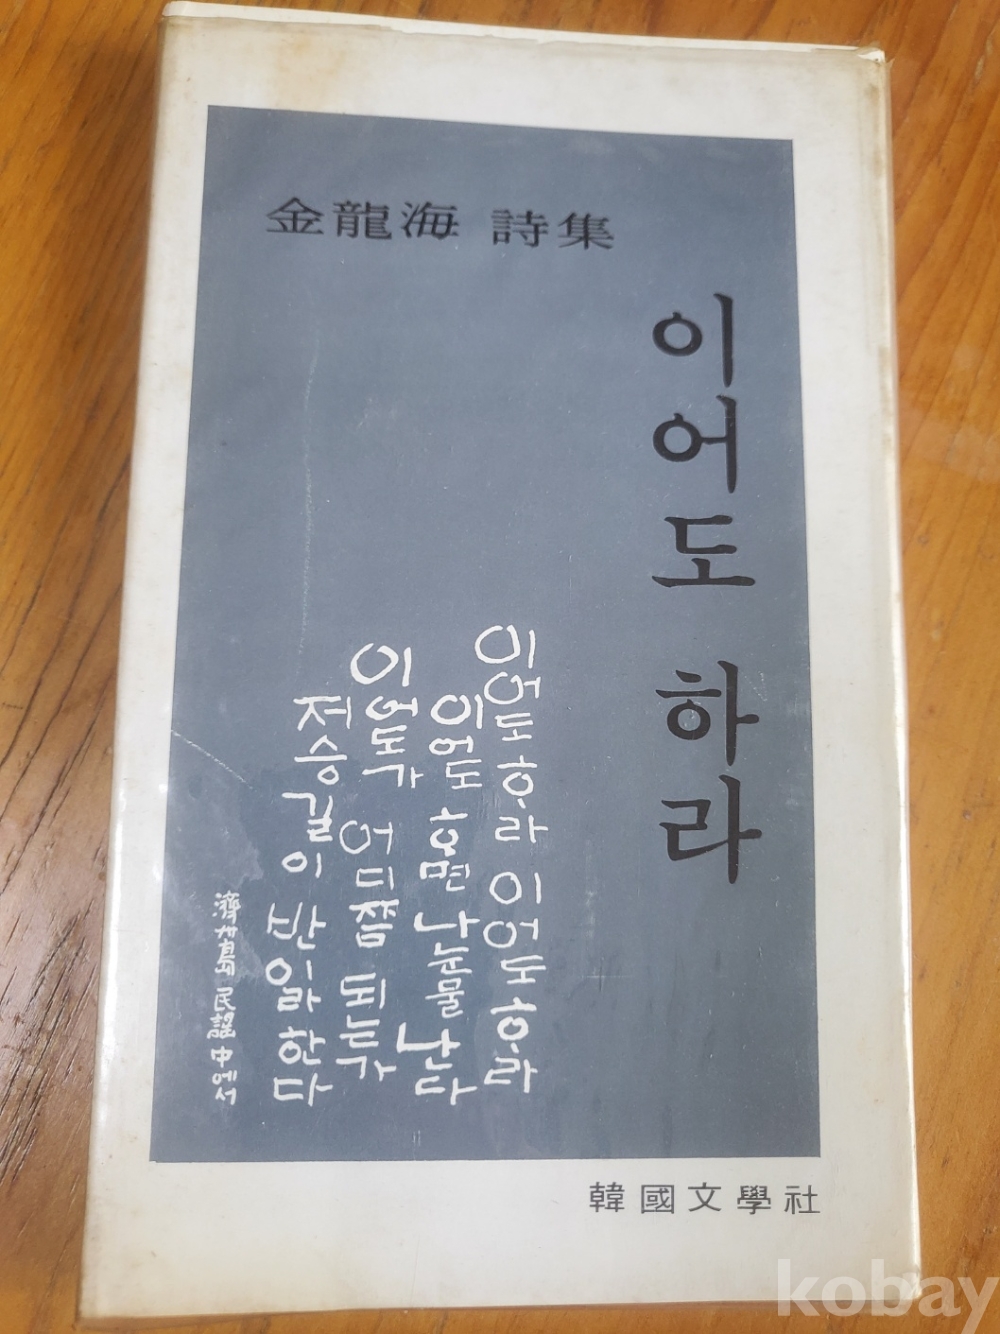 金龍海 詩集
이어도 하라
이어도ᄒᆞ라 이어도ᄒᆞ라
이어도 ᄒᆞ면 나눈물 난다
이어도가 어디쯤 되는가
저승길이 반일라 한다
濟州島 民謠 中에서
韓國文學社
kobay